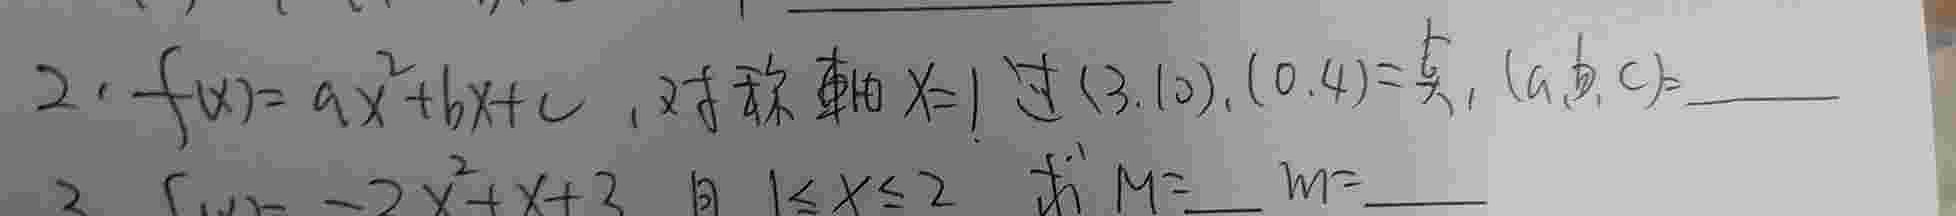 2. f(x)=ax²+bx+c,对称軸x=1过(3.10).(0.4)=点,(a,b,c)=____
3 f(x)=-2x²+x+3 且 1≤x≤2 求 M=__ m=____